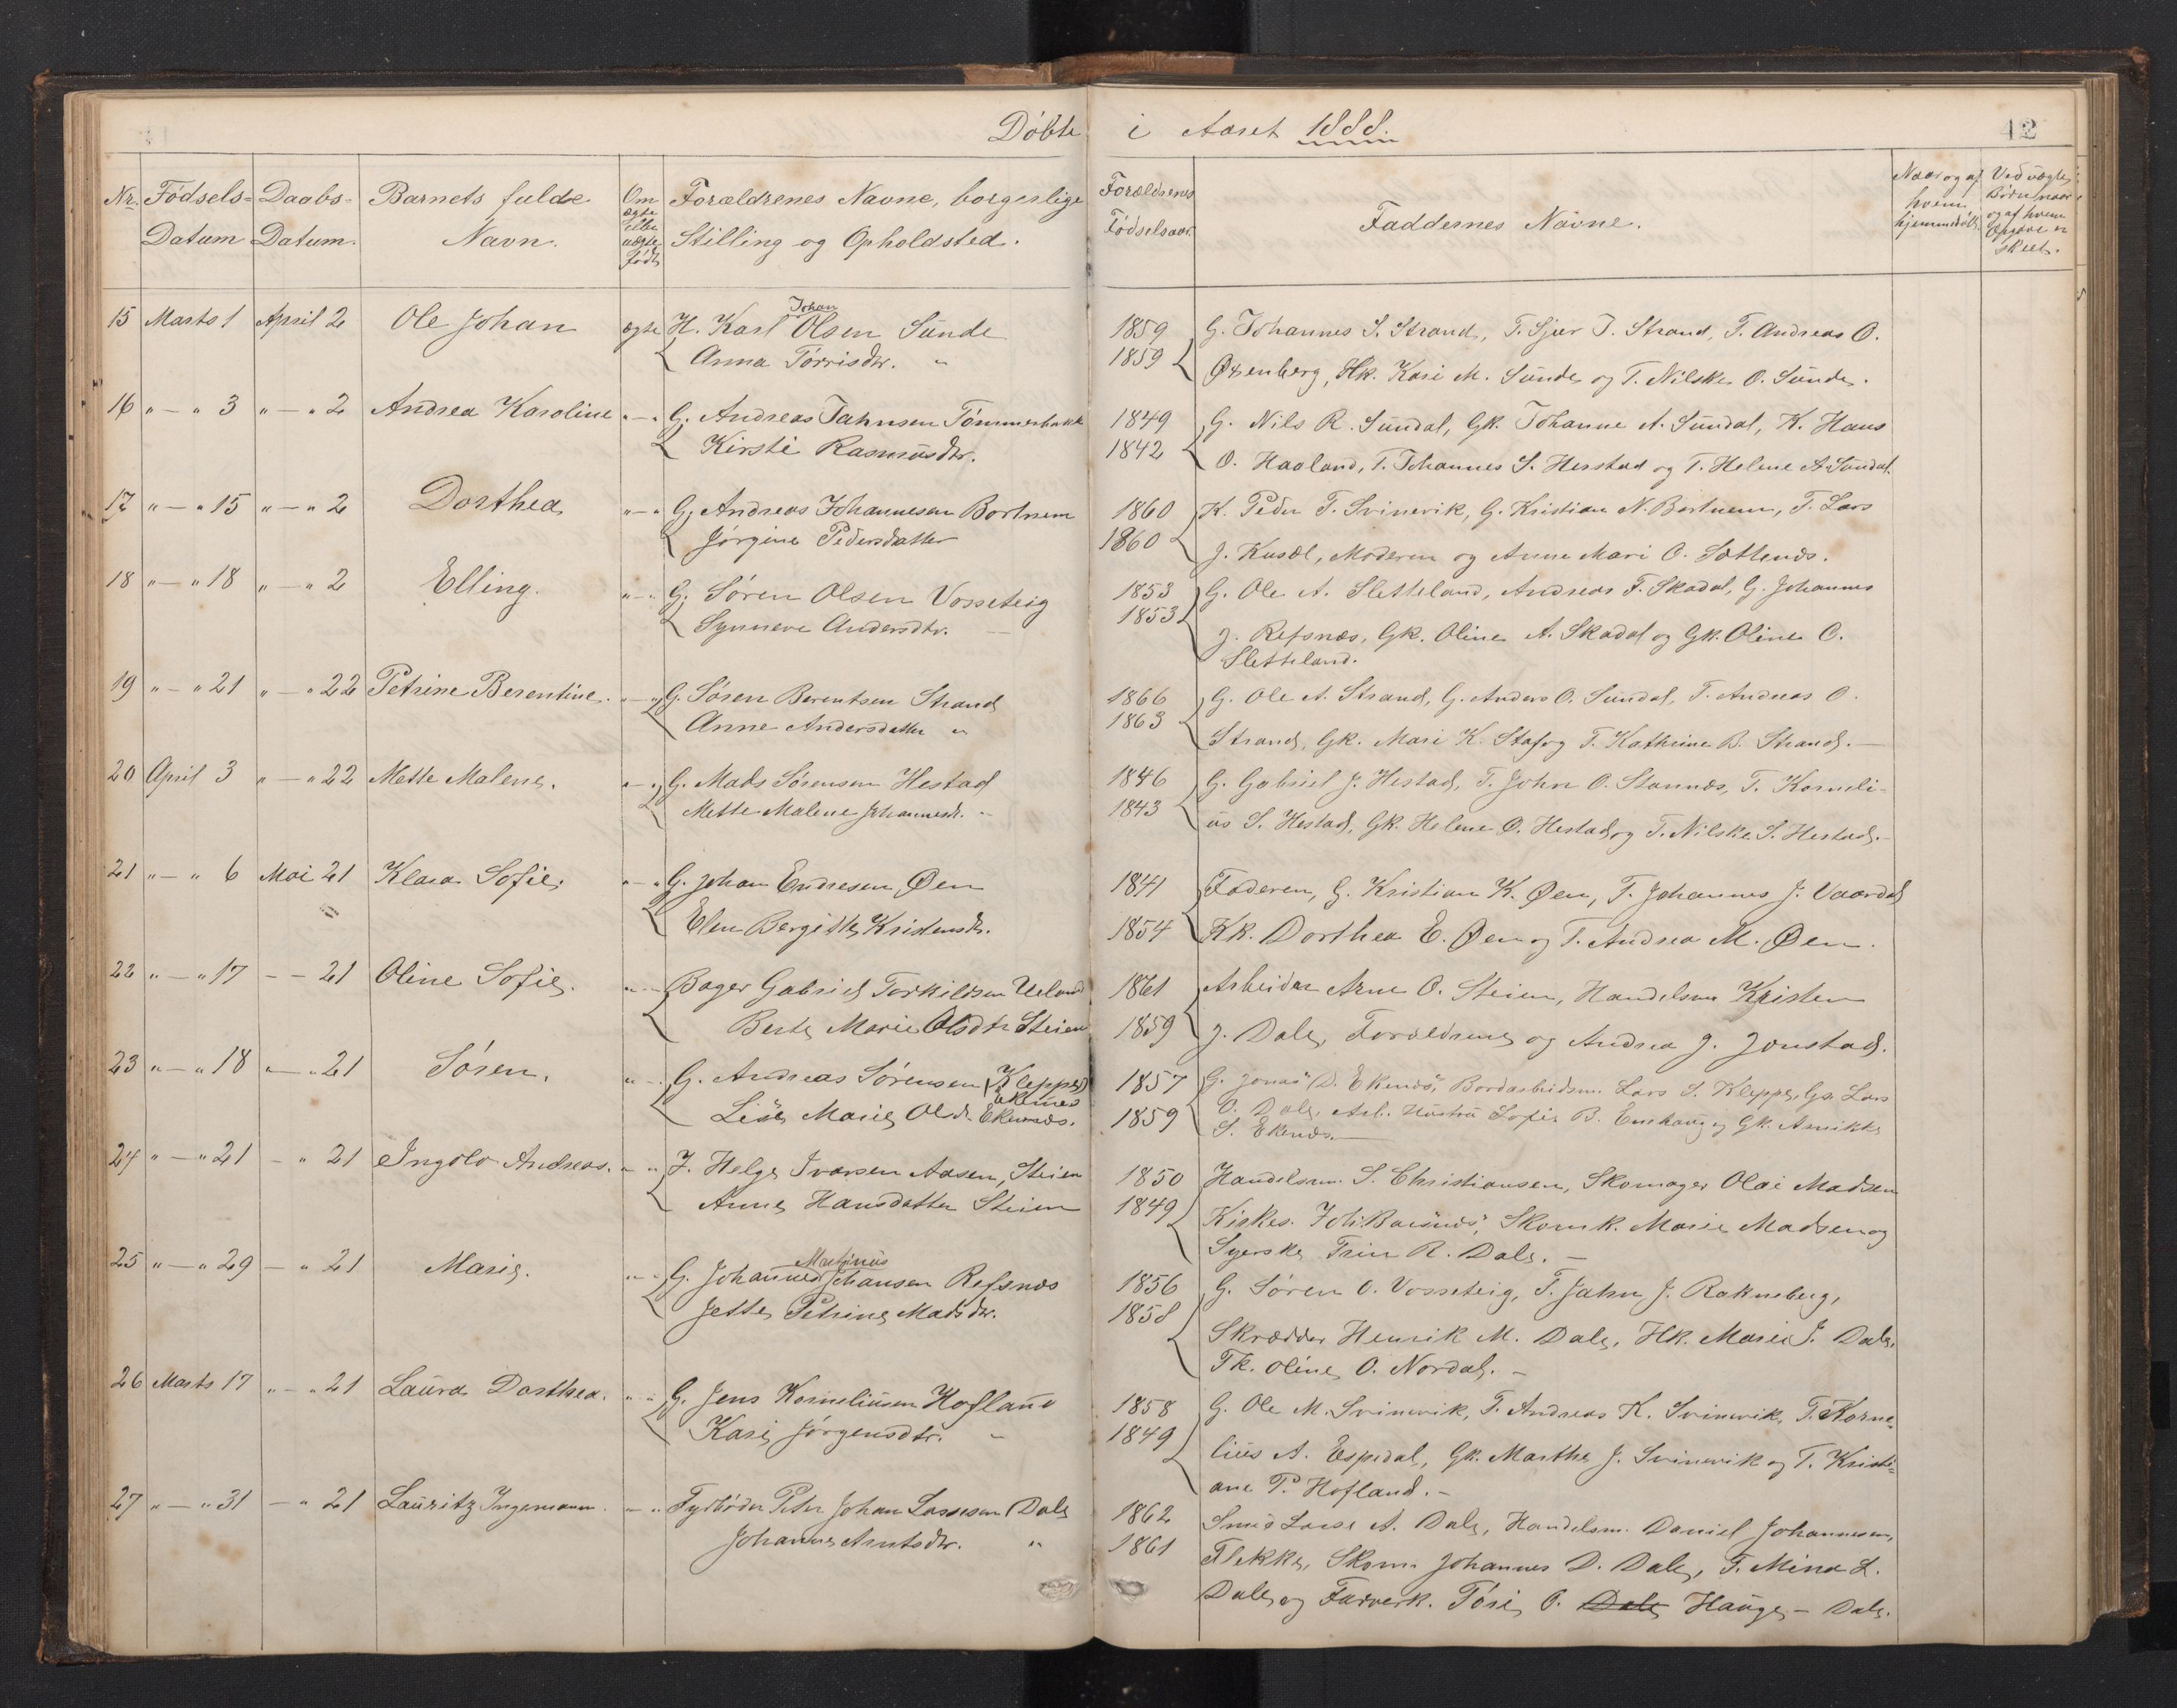 Döbte i Aaret 1888.
42
Nr. Fødsels- Daabs- Barnets fulde Om Forældrenes Navne, borgerlige Forældrenes Faddernes Navne. Naar og af Ved uægte
Datum Datum. Navn. ægte eller uægte Født Stilling og Opholdsted. Fødselsaar. hvem hjemmedøbt Børn, naar og af hvem Opgave er skeet.
15 Marts 1 April 2 Ole Johan ægte H. Karl Johan Olsen Sunde 1859 G. Johannes S. Strand, T. Sjur J. Strand, T. Andreas O.
Anna Tørrisdtr. " 1859 Øxenberg, Hk. Kari M. Sunde og T. Nilske O. Sunde.
16 " — " 3 " — " 2 Andrea Karoline " — " G. Andreas Jahnsen Tømmerbakk 1849 G. Nils R. Sundal, Gk. Johanne A. Sundal, K. Hans
Kirsti Rasmusdtr. 1842 O. Haaland, T. Johannes S. Herstad og T. Helene A. Sundal.
17 " — " 15 " — " 2 Dorthea " — " G. Andreas Johannesen Bortnem 1860 K. Peder T. Svinevik, G. Kristian N. Bortnem, T. Lars
Jørgine Pedersdatter 1860 J. Kusæl, Moderen og Anne Mari O. Sætlends.
18 " — " 18 " — " 2 Elling. " — " G. Søren Olsen Vosseteig 1853 G. Ole A. Sletteland, Andreas F. Skadal, G. Johannes
Synneve Andersdtr. — 1853 J. Refsnæs, Gk. Oline A. Skadal og Gk. Oline O.
Sletteland.
19 " — " 21 " — " 22 Petrine Berentine. " — " G. Søren Berentsen Strand 1866 G. Ole A. Strand, G. Anders O. Sundal, T. Andreas O.
Anne Andersdatter " 1863 Strand, Gk. Mari K. Staf og T. Kathrine B. Strand. —
20 April 3 " — " 22 Mette Malene. " — " G. Mads Sørensen Hestad 1846 G. Gabriel J. Hestad, T. John O. Stannæs, T. Korneli-
Mette Malene Johannesdr. " 1843 us S. Hestad, Gk. Helene O. Hestad og T. Nilske S. Hestad. —
21 " — " 6 Mai 21 Klara Sofie. " — " G. Johan Endresen Øen 1841 Faderen, G. Kristian K. Øen, T. Johannes J. Vaardal
Elen Bergitte Kristensdr. 1854 Kk. Dorthea E. Øen og T. Andrea M. Øen.
22 " — " 17 — — 21 Oline Sofie. " — " Bager Gabriel Torkildsen Ueland 1861 Arbeider Arne O. Steien, Handelsm. Kristen
Berte Marie Olsdtr Steien 1859 J. Dale, Forældrene og Andrea J. Jonstad.
23 " — " 18 " — " 21 Søren. " — " G. Andreas Sørensen (Kleppe) Ekenes 1857 G. Jonas D. Ekenæs, Bordarbeidsm. Lars S. Kleppe, Gs. Lars
Lise Marie Olsdr. Ekenæs. 1859 O. Dale, Arb. Hustru Sofie B. Enehaug og Gk. Annikke
S. Ekenæs. —
24 " — " 21 — " 21 Ingolv Andreas. " — " J. Helge Ivarsen Aasen, Steien 1850 Handelsm. S. Christiansen, Skomager Olai Madsen
Anne Hansdatter Steien 1849 Skomk. Marie Madsen og
Syerske Trine R. Dale. —
25 " — " 29 — " 21 Marie. " — " G. Johannes Martinus Johansen Refsnæs 1856 G. Søren O. Vosseteig, T. Jahn J. Rakneberg,
Jette Petrine Madsdtr. 1858 Skrædder Henrik M. Dale, Hk. Marie J. Dale,
Tk. Oline O. Nordal. —
26 Marts 17 " — " 21 Laura Dorthea. " — " G. Jens Korneliusen Hofland 1858 G. Ole M. Svinevik, T. Andreas K. Svinevik, T. Korne-
Kari Jørgensdtr. — 1849 lius A. Espedal, Gk. Marthe J. Svinevik og T. Kristi-
ane P. Hofland. —
27 " — " 31 — " 21 Lauritz Ingemann. " — " Fyrbøder Peter Johan Lassesen Dale 1862 Smed Lasse A. Dale, Handelsm. Daniel Johannesen,
Johanne Arntsdtr. " 1861 Flekke, Skom. Johannes D. Dale, T. Mina L.
Dale og Farverk. Tøri O. Dale Hauge — Dale.